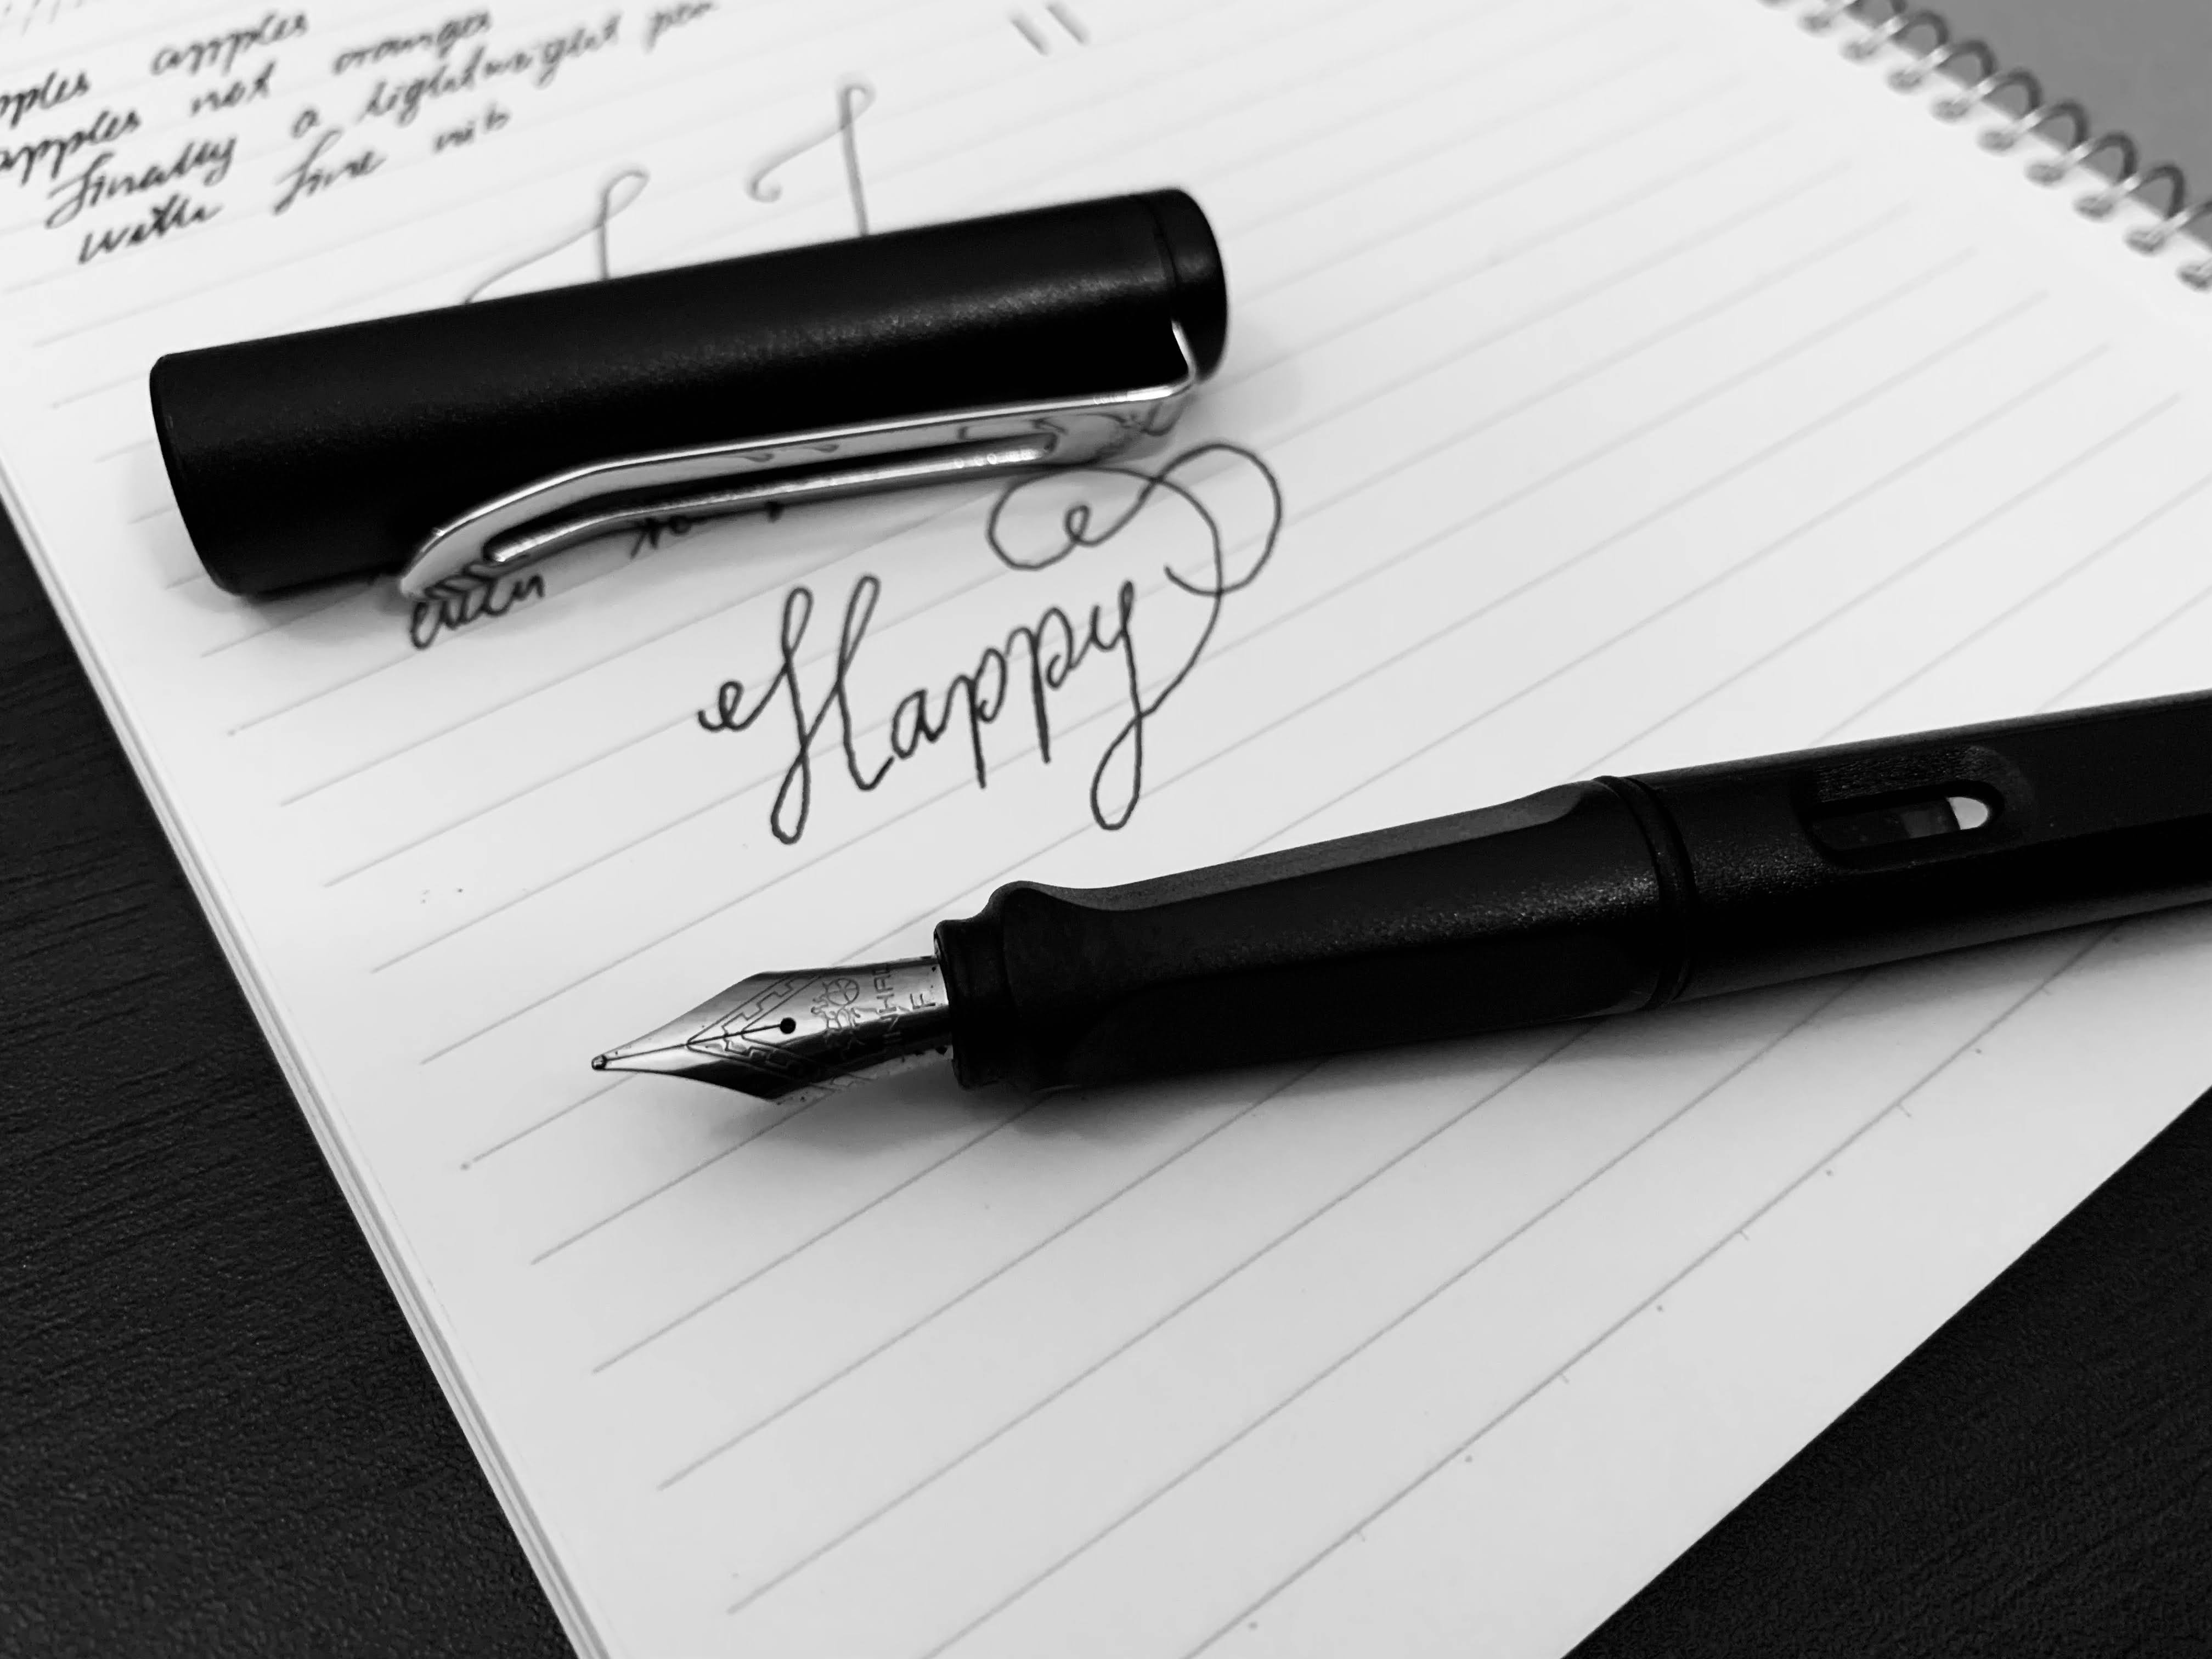 apples
apples not oranges
finally a lightweight pen
with fine nib
Happy
JINHAO
F